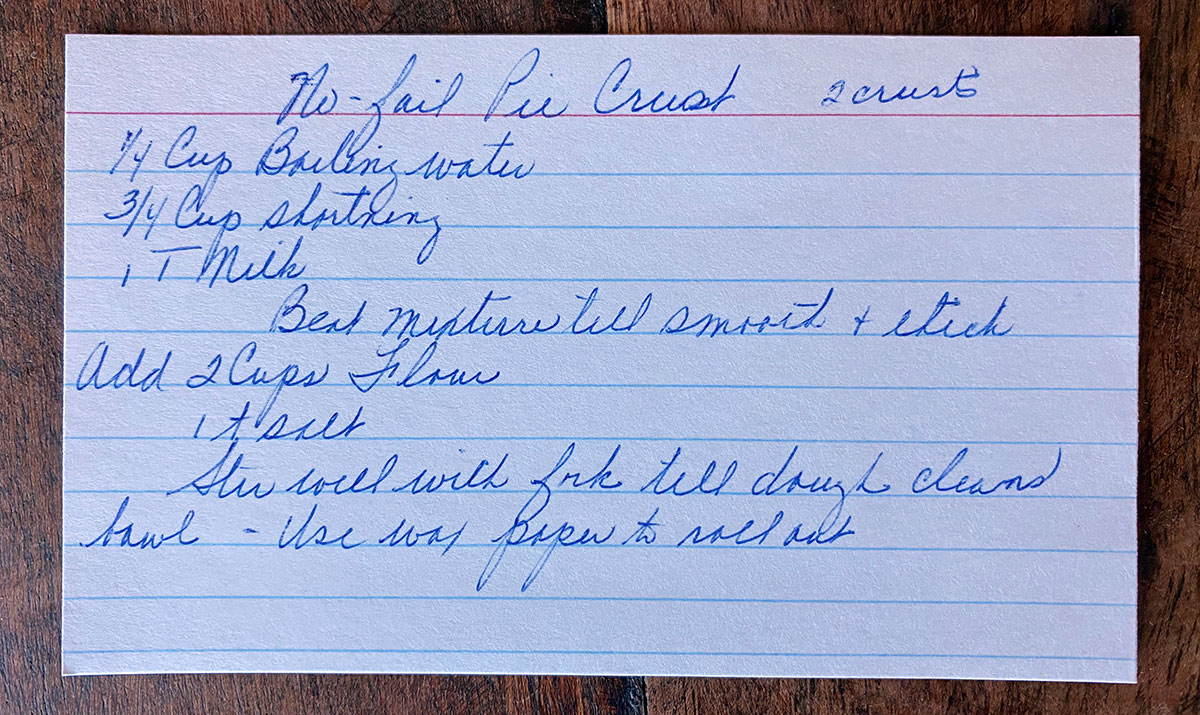 No-fail Pie Crust 2 crusts
1/4 Cup Boiling water
3/4 Cup shortning
1 T Milk
Beat mixture till smooth + thick
Add 2 Cups Flour
1 t salt
Stir well with fork till dough cleans
bowl - Use wax paper to roll out